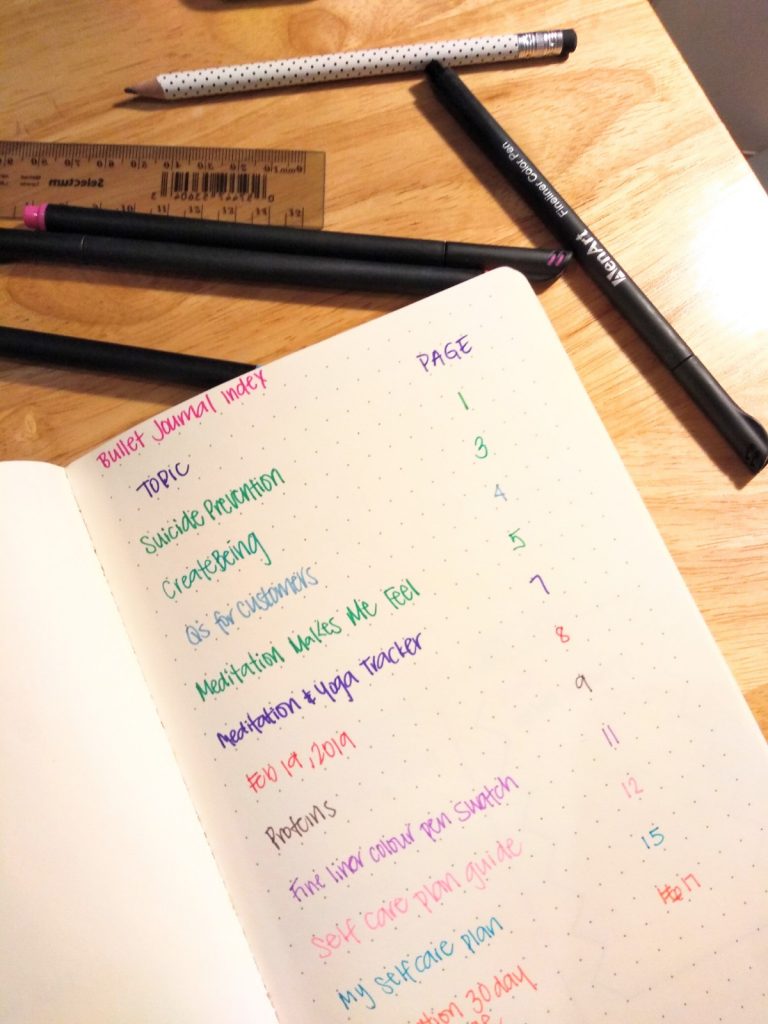 Selectum
Fineliner Color Pen
Bullet Journal Index
TOPIC PAGE
Suicide Prevention 1
CreateBeing 3
Q's for customers 4
Meditation Makes Me Feel 5
Meditation & Yoga Tracker 7
Feb 19, 2019 8
Proteins 9
Fine liner colour pen swatch 11
Self care plan guide 12
My selfcare plan 15
30 day 17